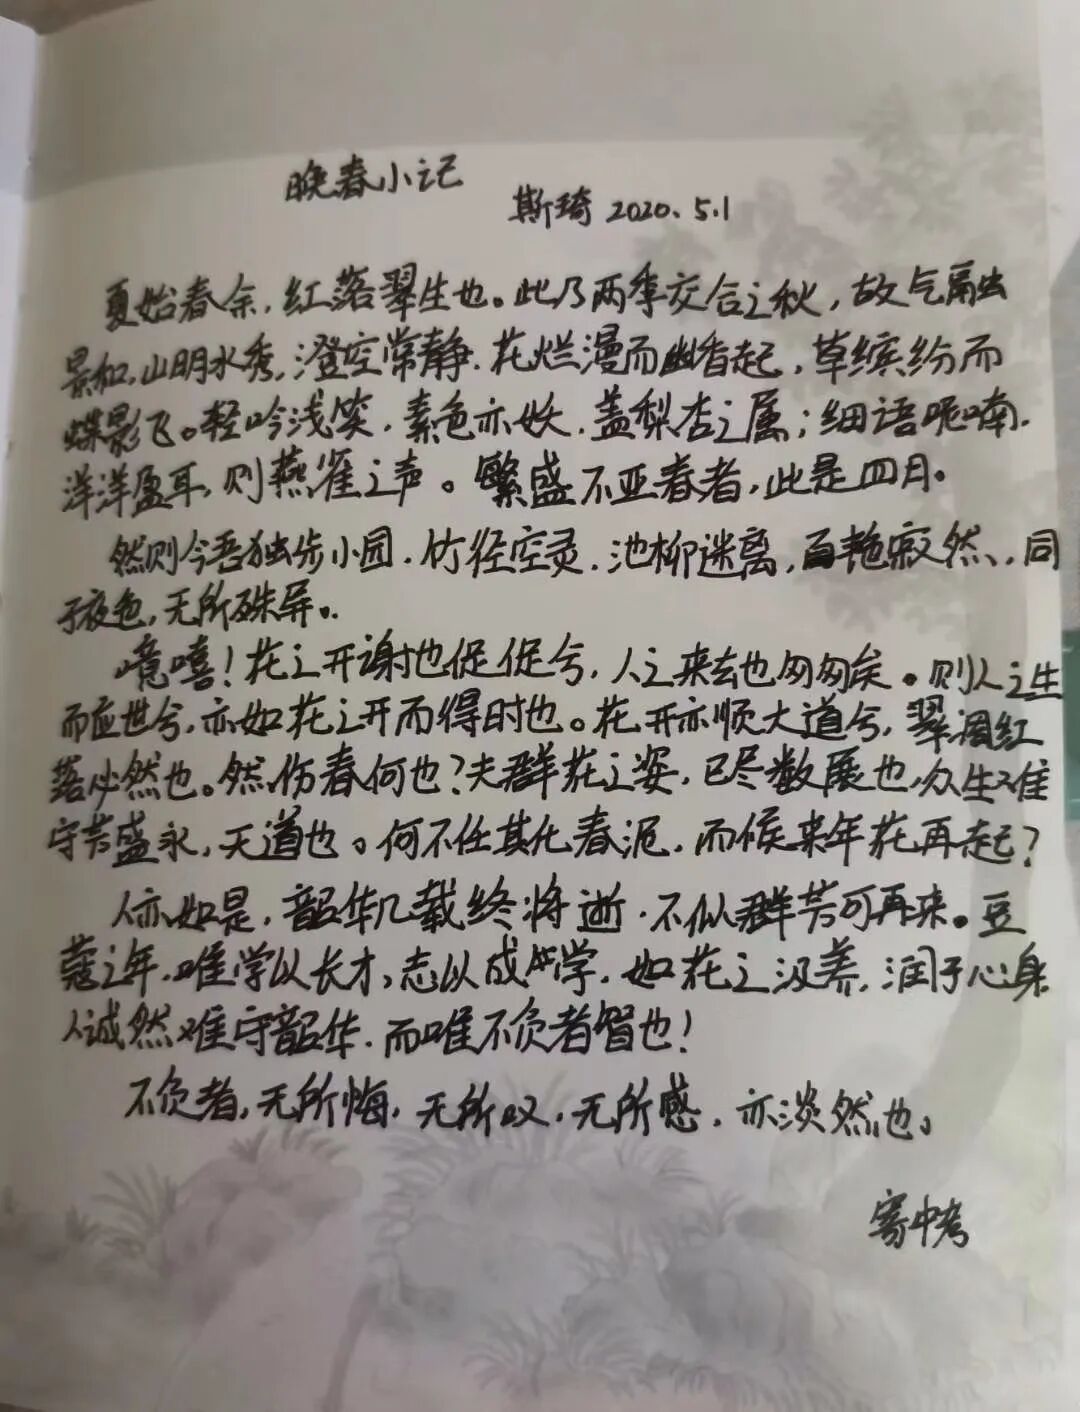 晚春小记
斯琦 2020.5.1
夏始春余,红落翠生也。此乃两季交合之秋,故气融
景和,山明水秀,澄空常静.花烂漫而幽香起,草缤纷而
蝶影飞。轻吟浅笑.素色亦妖.盖梨杏之属;细语呢喃.
洋洋盈耳,则燕雀之声。繁盛不亚春者,此是四月。
然则今吾独步小园.竹径空灵.池柳迷离,百艳寂然.同
于夜色,无所殊异。
噫嘻!花之开谢也促促兮,人之来去也匆匆矣。则人之生
而应世兮,亦如花之开而得时也。花开亦顺大道兮,翠凋红
落必然也。然,伤春何也?夫群花之姿,已尽数展也,众生难
守芳盛永,天道也。何不任其化春泥.而候来年花再起?
人亦如是.韶华几载终将逝.不似群芳可再来。豆
蔻之年.唯学以长才,志以成学.如花之汲养.润于心身
人诚然难守韶华.而唯不负者智也!
不负者,无所悔.无所叹.无所惑.亦淡然也。
寄中考